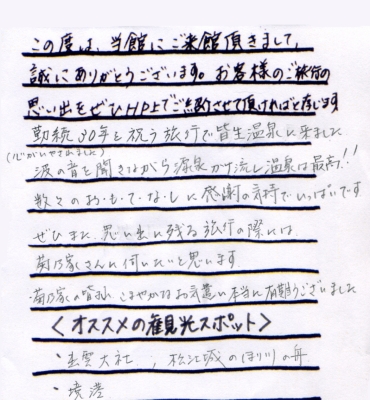 この度は、当館にご来館頂きまして、
誠にありがとうございます。お客様のご旅行の
思い出をぜひHP上でご紹介させて頂ければと存じます
勤続30年を祝う旅行で皆生温泉に来ました
(心がいやされました)
波の音を聞きながら源泉かけ流し温泉は最高!!
数々のお・も・て・な・しに感謝の気持でいっぱいです
ぜひまた、思い出に残る旅行の際には、
菊乃家さんに伺いたいと思います。
菊乃家の皆様、こまやかなお気遣い本当に有難うございました
<オススメの観光スポット>
・出雲大社 , 松江城のほり川の舟
・境港